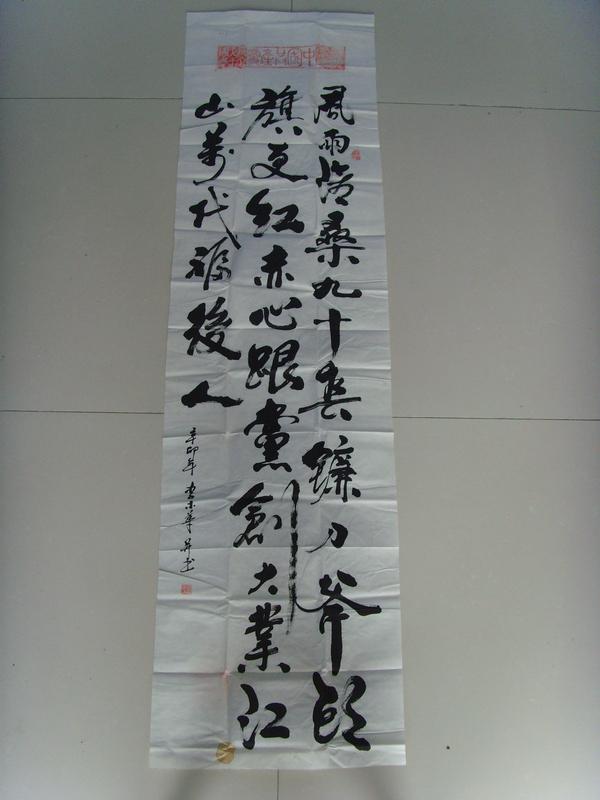 風雨滄桑九十春鐮刀斧頭
旗更紅赤心跟黨創大業江
山萬代福後人
辛卯年